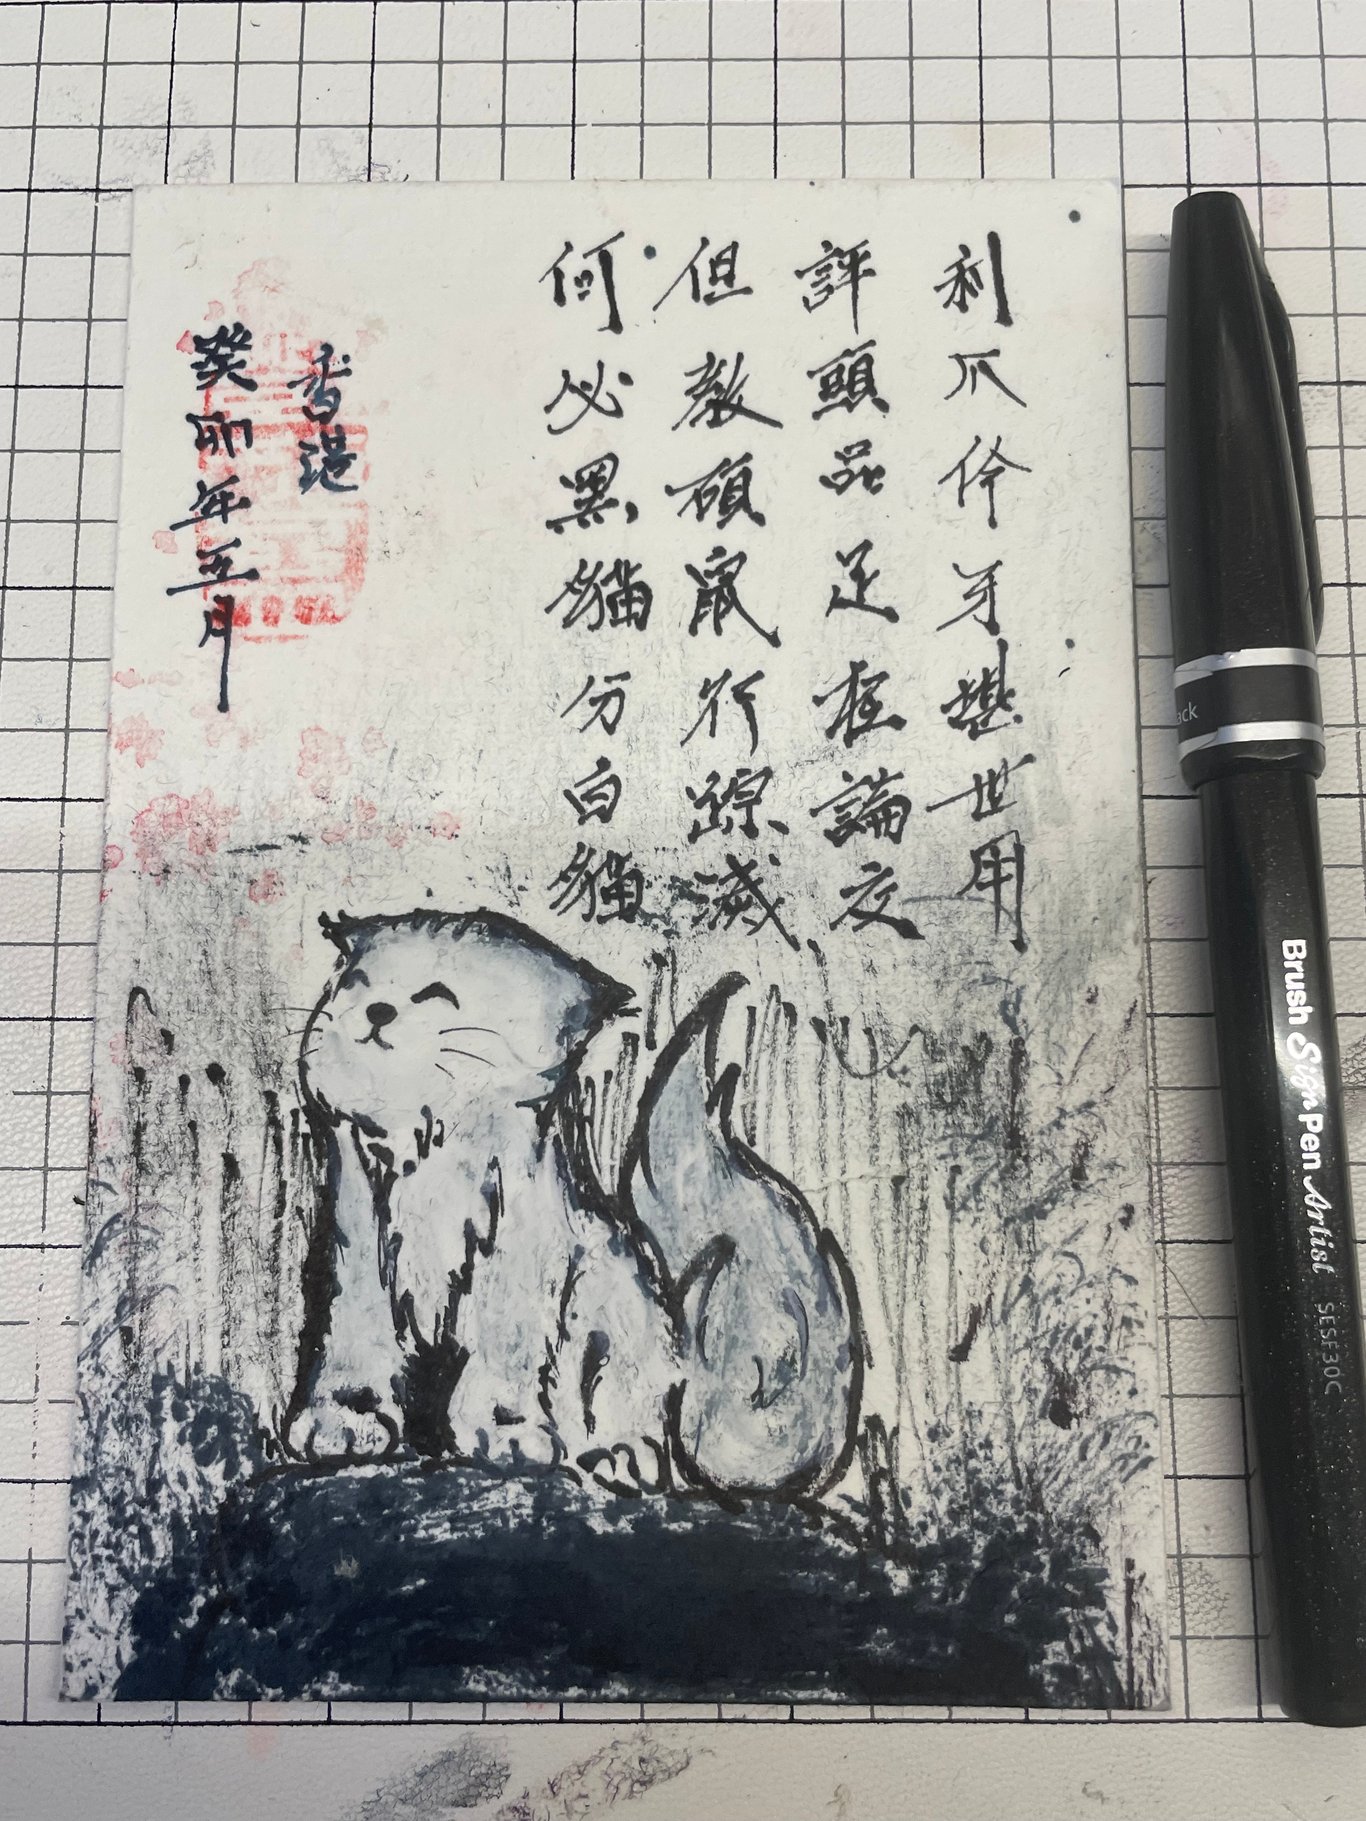 利爪伶牙堪世用
評頭品足枉論交
但教碩鼠行踪滅
何必黑貓分白貓
香港
癸卯年五月
Brush Sign Pen Artist SESF30C